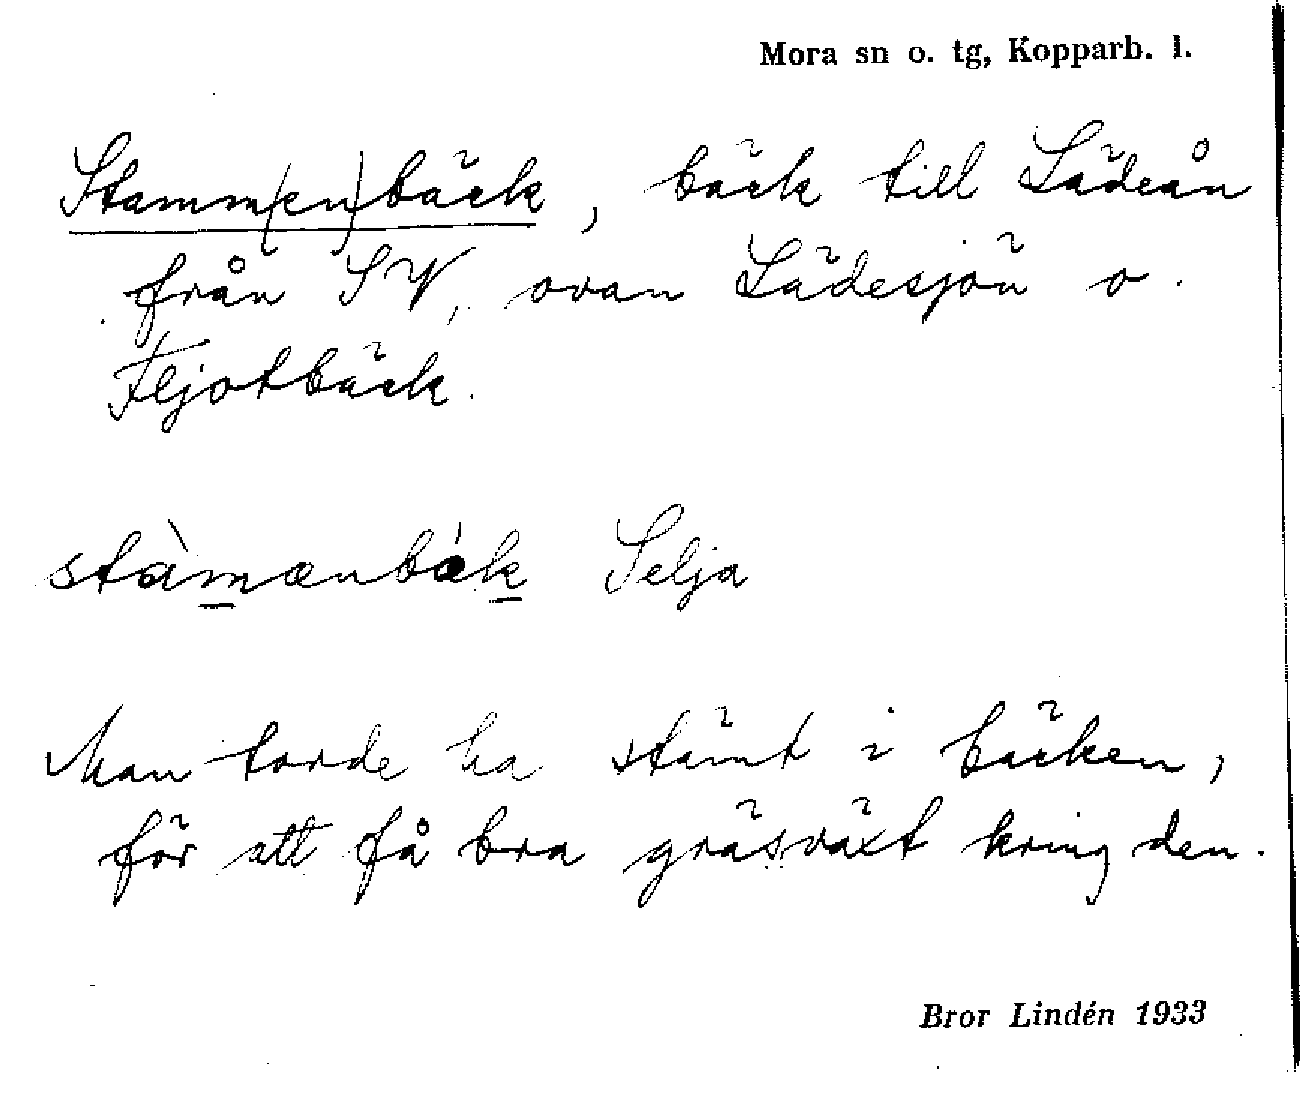 Mora sn o. tg, Kopparb. l.
Stamm(en)bäck, bäck till Lädeån
från SV, ovan Lädesjön o.
Fljotbäck.
stàmænbák Selja
Man torde ha stämt i bäcken,
för att få bra gräsväxt kring den.
Bror Lindén 1933